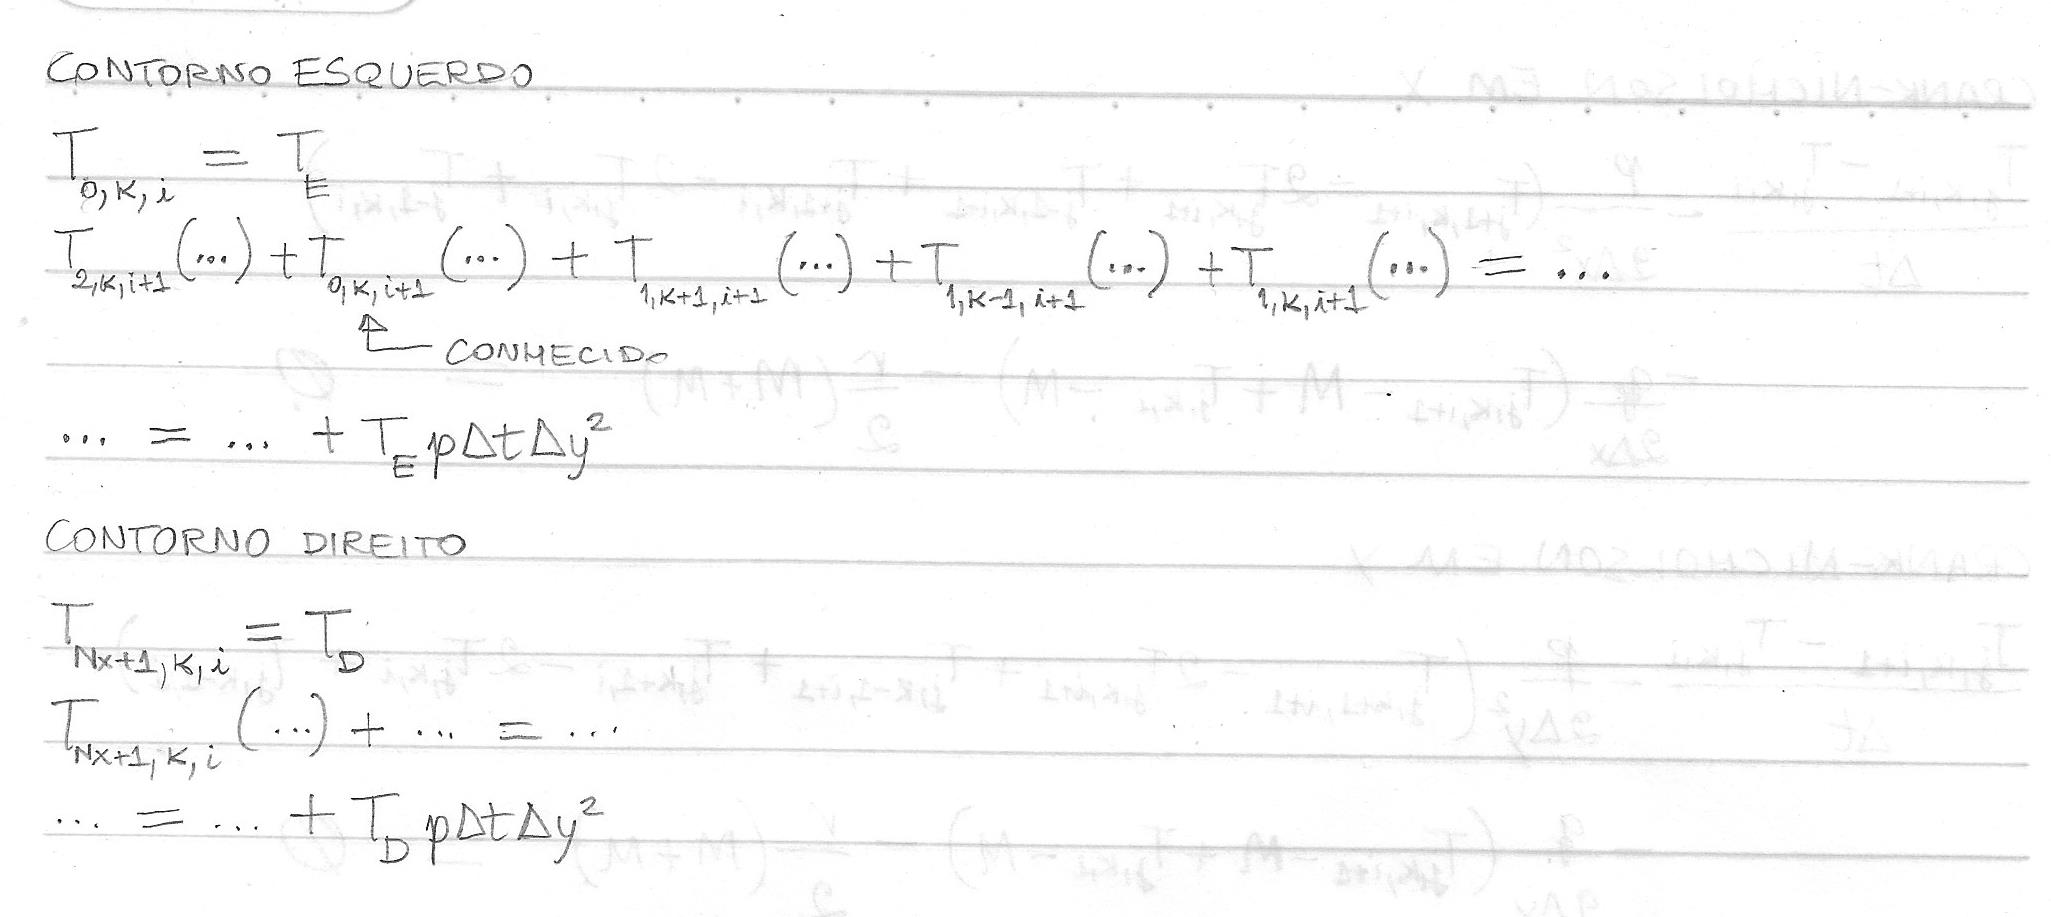 CONTORNO ESQUERDO
T_{0,K,i} = T_E
T_{2,K,i+1}(...) + T_{0,K,i+1}(...) + T_{1,K+1,i+1}(...) + T_{1,K-1,i+1}(...) + T_{1,K,i+1}(...) = ...
CONHECIDO
... = ... + T_E pΔtΔy²
CONTORNO DIREITO
T_{Nx+1,K,i} = T_D
T_{Nx+1,K,i}(...) + ... = ...
... = ... + T_D pΔtΔy²